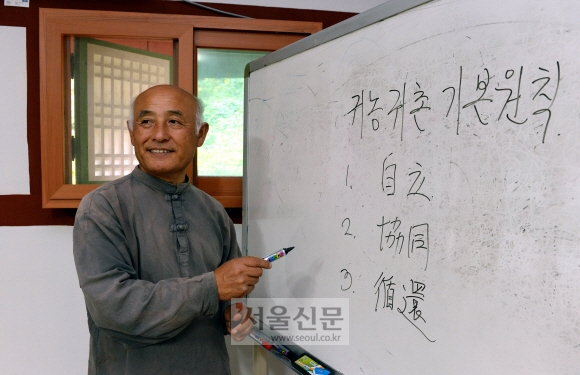 귀농귀촌 기본원칙
1. 自立
2. 協同
3. 循還
서울신문
www.seoul.co.kr